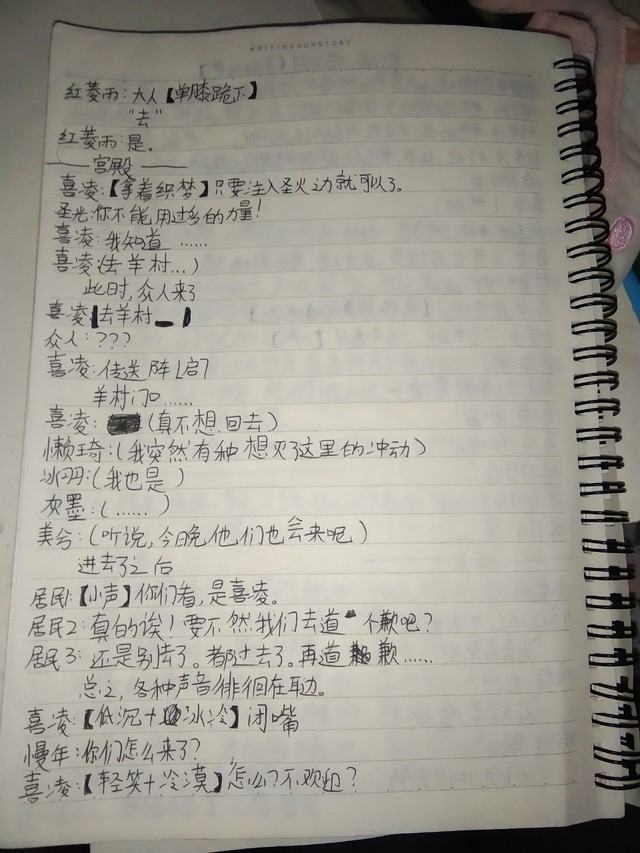 WRITINGOURSTORY
红菱雨:大人【单膝跪下】
"去"
红菱雨:是.
——宫殿——
喜凌:【拿着织梦】只要注入圣火力就可以了。
圣光:你不能用过多的力量!
喜凌:我知道……
喜凌(去羊村…)
此时,众人来了
喜凌【去羊村 】
众人:???
喜凌:传送阵[启]
羊村门口……
喜凌:(真不想回去)
懒琦:(我突然有种想灭了这里的冲动)
冰羽:(我也是)
灰墨:(……)
美兮:(听说,今晚他们也会来呢)
进去了之后
居民1:【小声】你们看,是喜凌。
居民2:真的诶!要不然我们去道个歉吧?
居民3:还是别去了。都过去了。再道歉……
总之,各种声音徘徊在耳边。
喜凌:【低沉+冰冷】闭嘴
慢年:你们怎么来了?
喜凌:【轻笑+冷漠】怎么?不欢迎?